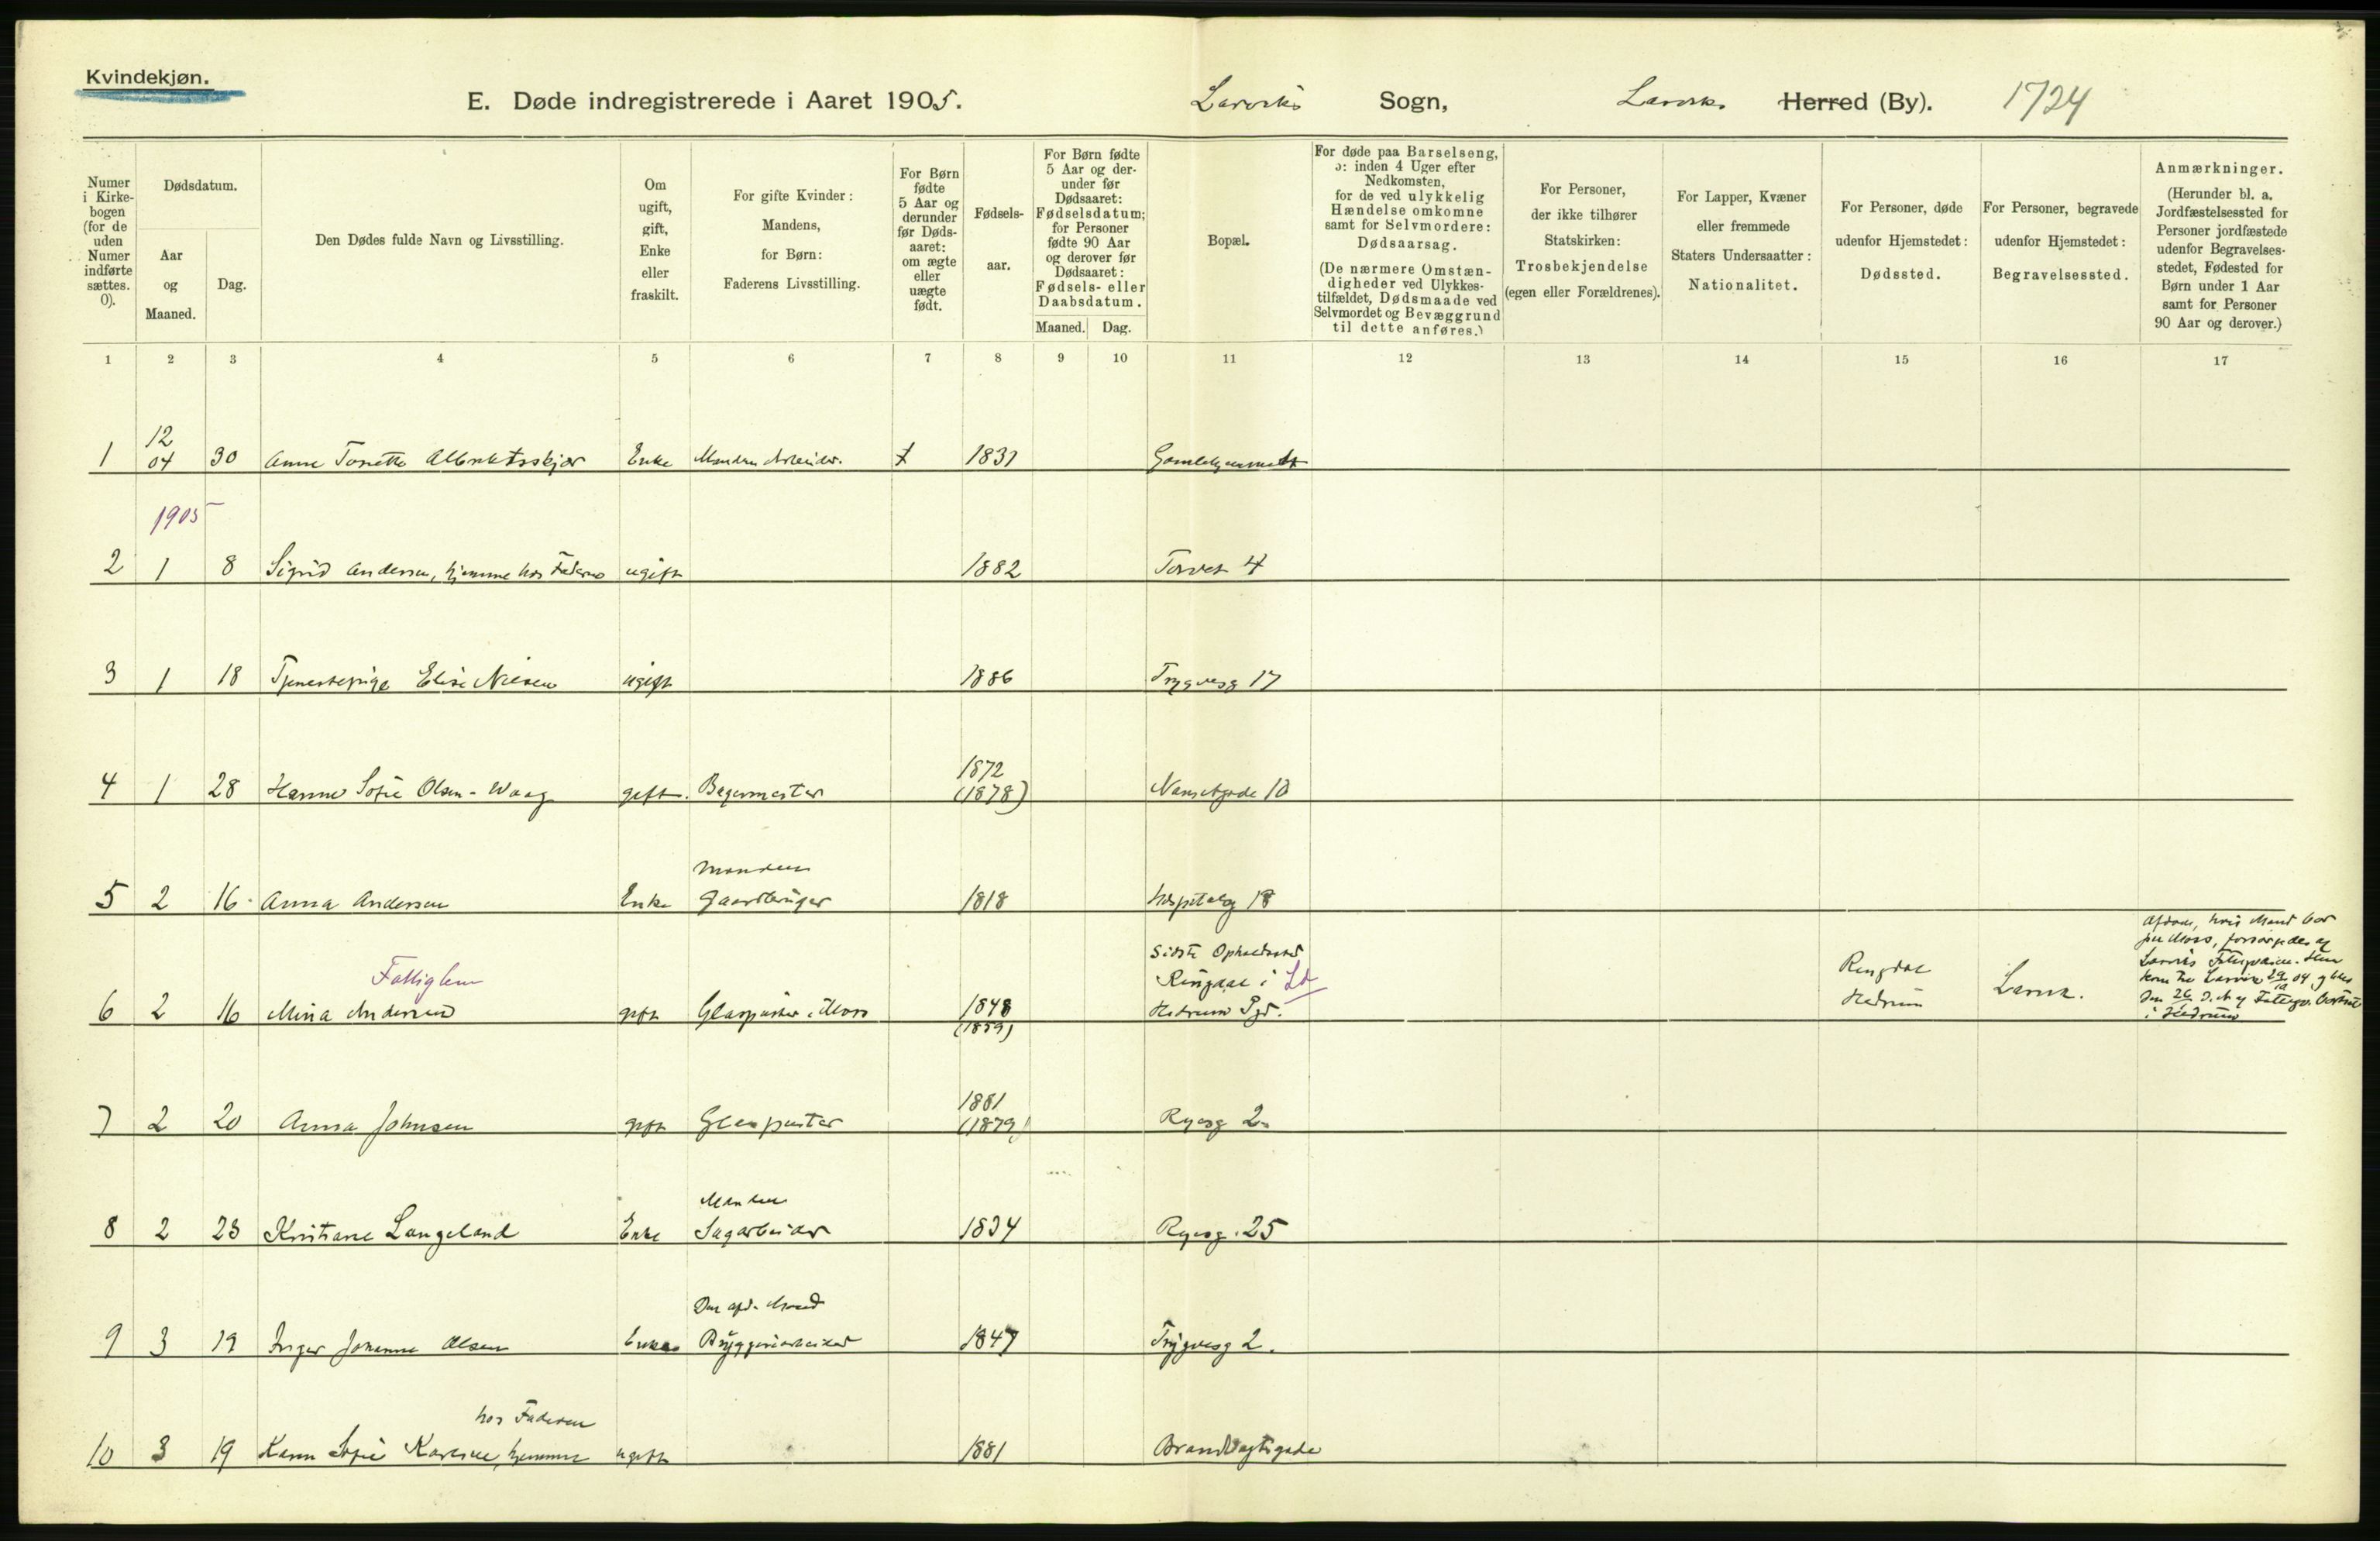 Kvindekjøn.
E. Døde indregistrerede i Aaret 1905. Larviks Sogn, Larviks Herred (By). 1724
Numer i Kirkebogen (for de uden Numer indførte sættes. 0).
Dødsdatum.
Aar og Maaned.
Dag.
Den Dødes fulde Navn og Livsstilling.
Om ugift, gift, Enke eller fraskilt.
For gifte Kvinder: Mandens, for Børn: Faderens Livsstilling.
For Børn fødte 5 Aar og derunder før Dødsaaret: om ægte eller uægte født.
Fødselsaar.
For Børn fødte 5 Aar og derunder før Dødsaaret: Fødselsdatum; for Personer fødte 90 Aar og derover før Dødsaaret: Fødsels- eller Daabsdatum.
Maaned. Dag.
Bopæl.
For døde paa Barselseng, ɔ: inden 4 Uger efter Nedkomsten, for de ved ulykkelig Hændelse omkomne samt for Selvmordere: Dødsaarsag.
(De nærmere Omstændigheder ved Ulykkestilfældet, Dødsmaade ved Selvmordet og Bevæggrund til dette anføres.)
For Personer, der ikke tilhører Statskirken: Trosbekjendelse (egen eller Forældrenes).
For Lapper, Kvæner eller fremmede Staters Undersaatter: Nationalitet.
For Personer, døde udenfor Hjemstedet: Dødssted.
For Personer, begravede udenfor Hjemstedet: Begravelsessted.
Anmærkninger.
(Herunder bl. a. Jordfæstelsessted for Personer jordfæstede udenfor Begravelsesstedet, Fødested for Børn under 1 Aar samt for Personer 90 Aar og derover.)
1 2 3 4 5 6 7 8 9 10 11 12 13 14 15 16 17
12
1 04 30 Anne Tonette Enke Manden Arbeider. 1831 Gamlehjemmet
1905
2 1 8 Sigrid Andersen, hjemme hos Faderen ugift 1882 Torvet 4
3 1 18 Tjenestepige Elise Nilsen ugift 1886 Trygvesg 17
1872
4 1 28 Hanne Sofie Olsen-Waag gift. Bagermester (1878) Nansetgade 10
Manden
5 2 16 Anna Andersen Enke Gaardbruger 1818 Hospitalg 18
Fattiglem
Sidste Opholdssted
Ringdal i
Ringdal
6 2 16 Mina Andersen gift Glaspuster i Moss 1848 Hedrum Pgd. Hedrum Larvik.
(1859)
Afdøde, hvis Mand bor
paa Moss, forsørgedes af
Larviks Fattigvæsen. Hun
kom til Larvik 29/10 04 og blev
den 26 D. M. af Fattigv. bortsat
i Hedrum
1881
7 2 20 Anna Johnsen gift Glaspuster (1879) Ryesg 2.
Manden
8 2 23 Kristiane Langeland Enke Sagarbeider 1834 Ryesg. 25
Den afd. Mand
9 3 19 Inger Johanne Olsen Enke Bryggeriarbeider 1847 Trygvesg 2.
hos Faderen
10 3 19 Karen Sofie hjemme ugift 1881 Brandvagtsgade